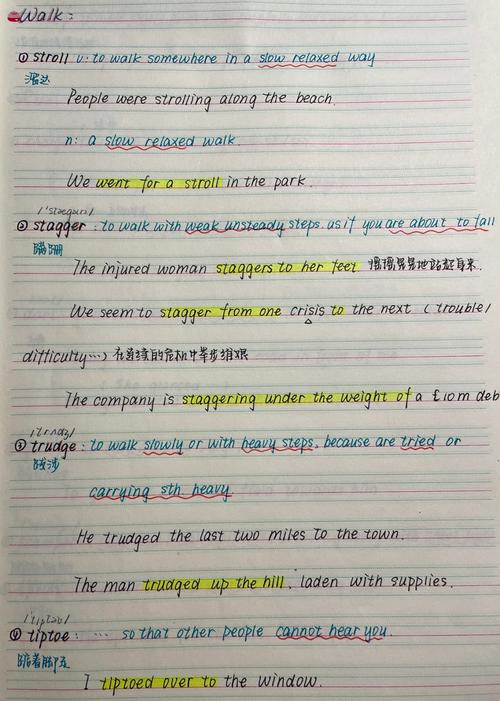 Walk:
① stroll v: to walk somewhere in a slow relaxed way
溜达
People were strolling along the beach.
n: a slow relaxed walk.
We went for a stroll in the park.
/'stægər/
② stagger: to walk with weak unsteady steps. as if you are about to fall
蹒跚
The injured woman staggers to her feet. 摇摇晃晃地站起身来.
We seem to stagger from one crisis to the next (trouble/
difficulty…) 在连续的危机中举步维艰
The company is staggering under the weight of a £10m deb
/trʌdʒ/
③ trudge: to walk slowly or with heavy steps, because are tried or
跋涉
carrying sth. heavy
He trudged the last two miles to the town.
The man trudged up the hill, laden with supplies.
/'tɪptəʊ/
④ tiptoe: … so that other people cannot hear you.
踮着脚走
I tiptoed over to the window.